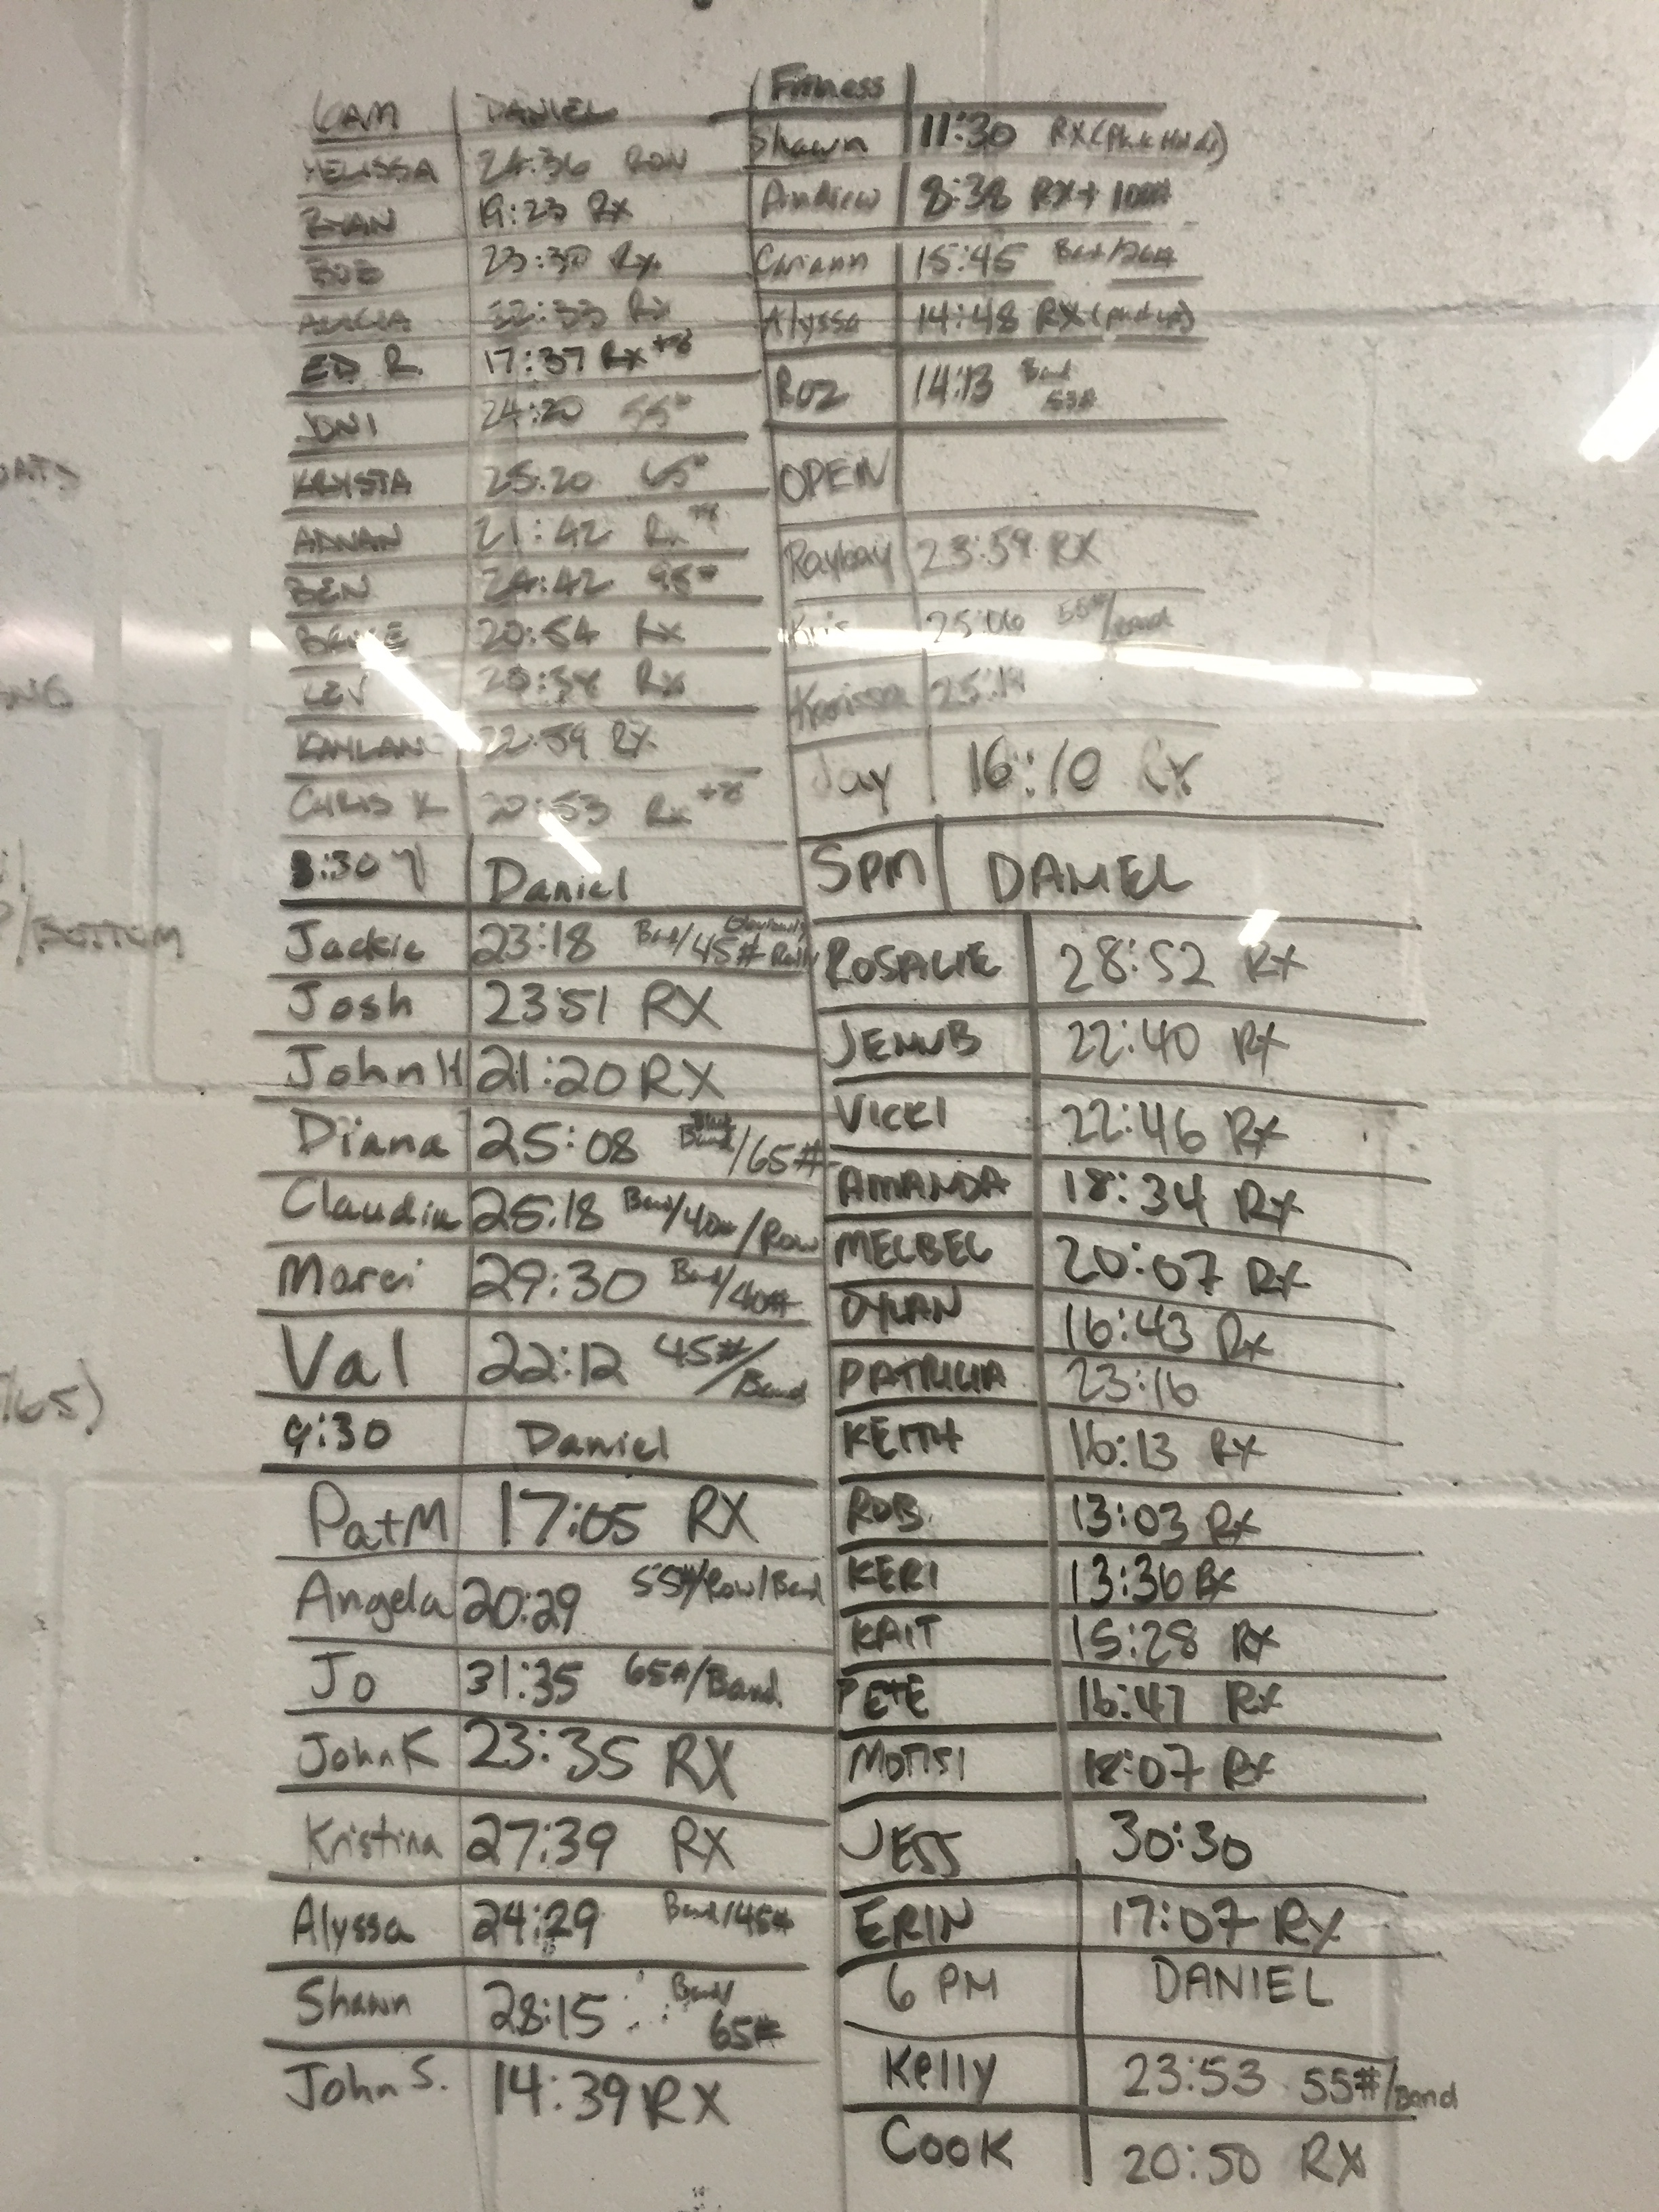 6AM DANIEL
MELISSA 24:36 ROW
RYAN 19:23 Rx
BOB 23:30 Rx
ALICIA 22:33 Rx
ED R. 17:37 Rx
JONI 24:20 55#
KRYSTA 25:20 65#
ADNAN 21:42 Rx
BEN 24:42 95#
20:54 Rx
LEV Rx
22:59 RX
CHRIS K 20:53 Rx
8:30 Daniel
Jackie 23:18 Band/45#
Josh 23:51 RX
John H 21:20 RX
Diana 25:08 Band/65#
Claudia 25:18 Band/40#/Row
Marci 29:30 Band/40#
Val 22:12 45#/Band
9:30 Daniel
Pat M 17:05 RX
Angela 20:29 55#/Row/Band
Jo 31:35 65#/Band
John K 23:35 RX
Kristina 27:39 RX
Alyssa 24:29 Band/45#
Shawn 28:15 Band/65#
John S. 14:39 RX
Fitness
Shawn 11:30 RX
Andrew 8:38 RX+
Cariann 15:45
Alyssa 14:48 RX
Roz 14:13 Band
OPEN
Raybay 23:59 RX
Kris 25:06 55#/Band
Karissa 25:19
Jay 16:10 Rx
5pm DANIEL
ROSALIE 28:52 Rx
JENN B 22:40 Rx
VICKI 22:46 Rx
AMANDA 18:34 Rx
MELBEL 20:07 Rx
DYLAN 16:43 Rx
PATRICIA 23:16
KEITH 16:13 Rx
ROB 13:03 Rx
KERI 13:36 Rx
KAIT 15:28 Rx
PETE 16:47 Rx
18:07 Rx
JESS 30:30
ERIN 17:07 Rx
6 PM DANIEL
Kelly 23:53 55#/Band
COOK 20:50 RX
/BOTTOM